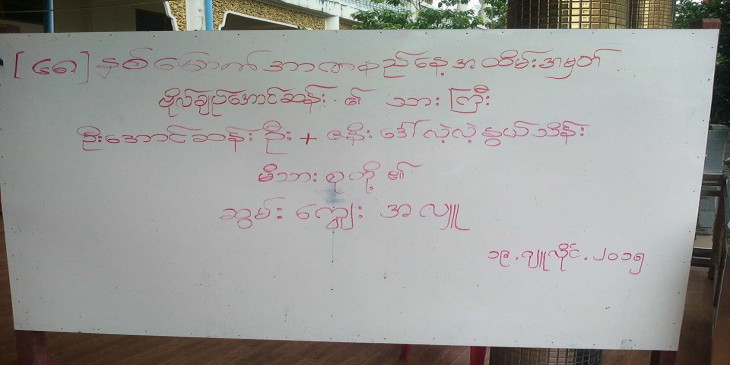 [၆၈] နှစ်မြောက် အာဇာနည်နေ့ အထိမ်းအမှတ်
ဗိုလ်ချုပ်အောင်ဆန်း ၏ သားကြီး
ဦးအောင်ဆန်းဦး + ဇနီး ဒေါ်လဲ့လဲ့နွယ်သိန်း
မိသားစုတို့၏
ဆွမ်းကျွေး အလှူ
၁၉.ဂျူလိုင်.၂၀၁၅